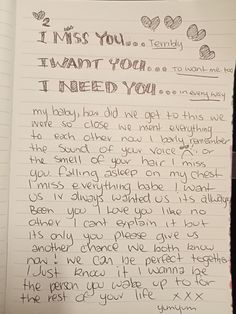 2
I MISS YOU... Terribly
I WANT YOU... to want me too
I NEED YOU... in every way
my baby, how did we get to this we
were so close we ment everything
to each other now I barly remember
the sound of your voice or
the smell of your hair I miss
you falling asleep on my chest
I miss everything babe I want
us iv always wanted us its always
Been you I love you like no
other I cant explain it but
its only you please give us
another chance we both know
now! we can be perfect together
I Just know it I wanna be
the person you wake up to for
the rest of your life xxx
yumyum